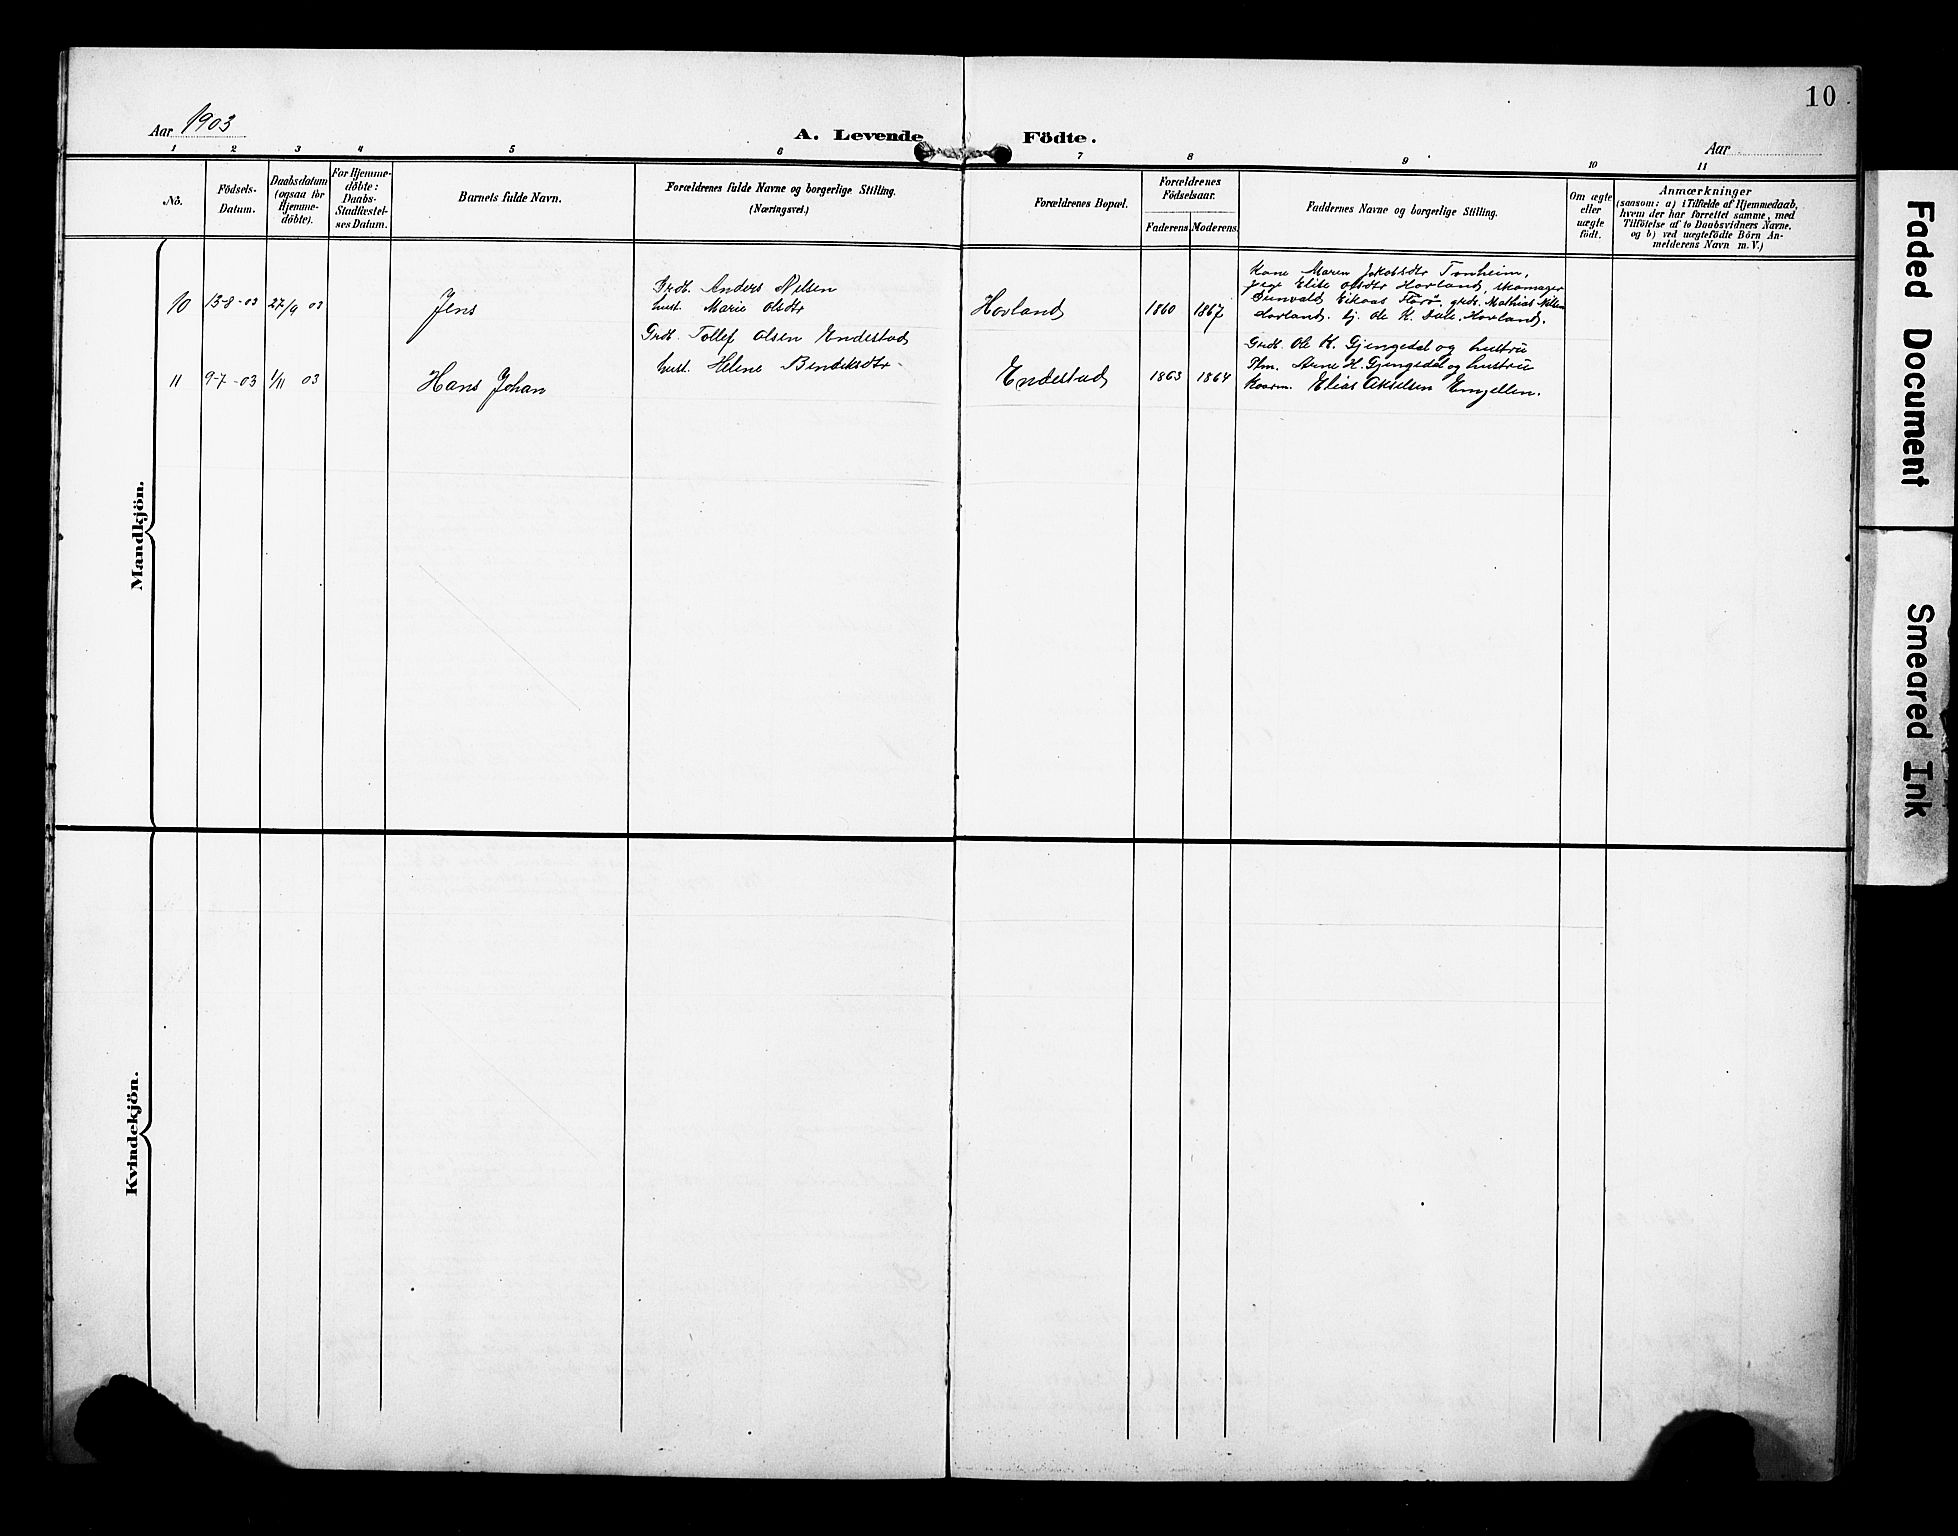 10
Aar 1903
A. Levende Födte.
Aar
1 2 3 4 5 6 7 8 9 10 11
No.
Födsels-
Datum.
Daabsdatum
(ogsaa for
Hjemme-
döbte).
For Hjemme-
döbte:
Daabs-
Stadfæstel-
ses Datum.
Barnets fulde Navn.
Forældrenes fulde Navne og borgerlige Stilling.
(Næringsvei.)
Forældrenes Bopæl.
Forældrenes
Födselsaar.
Faderens Moderens
Faddernes Navne og borgerlige Stilling.
Om ægte
eller
uægte
födt.
Anmærkninger
(saasom: a) i Tilfælde af Hjemmedaab,
hvem der har forrettet samme, med
Tilföielse af to Daabsvidners Navne,
og b) ved uægtefödte Börn An-
melderens Navn m. V.)
Mandkjön.
10 13-8-03 27/9 03
Jens
Grdb. Anders Nilsen
hust. Marie Olsdtr
Hovland
1860 1867
Kone Maren Jakobsdtr Tonheim,
pige Elise Olsdtr Hovland, skomager
Eikaas Florö. grdb. Mathias Nilsen
Hovland. Ole K. Dale, Hovland.
11 9-7-03 1/11 03
Hans Johan
Grdb. Tollef Olsen Endestad
hust. Helene Bendiksdtr
Endestad
1863 1864
Grdb. Ole H. Gjengedal og hustru
Arne H. Gjengedal og hustru
Elias Akselsen Emjellen.
Kvindekjön.
Faded Document
Smeared Ink